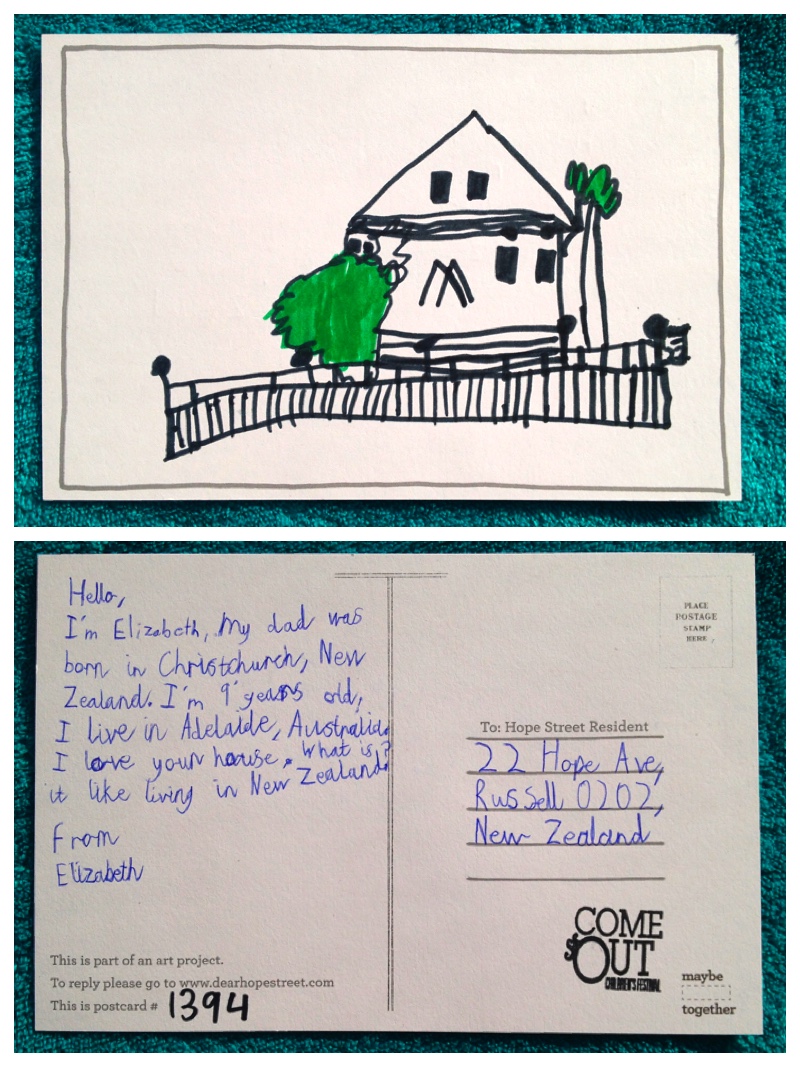 Hello,
I'm Elizabeth, My dad was
born in Christchurch, New
Zealand. I'm 9 years old,
I live in Adelaide, Australia.
I love your house. What is
it like living in New Zealand?
From
Elizabeth
This is part of an art project.
To reply please go to www.dearhopestreet.com
This is postcard # 1394
PLACE
POSTAGE
STAMP
HERE
To: Hope Street Resident
22 Hope Ave,
Russell 0202,
New Zealand
COME
OUT
CHILDREN'S FESTIVAL
maybe
together